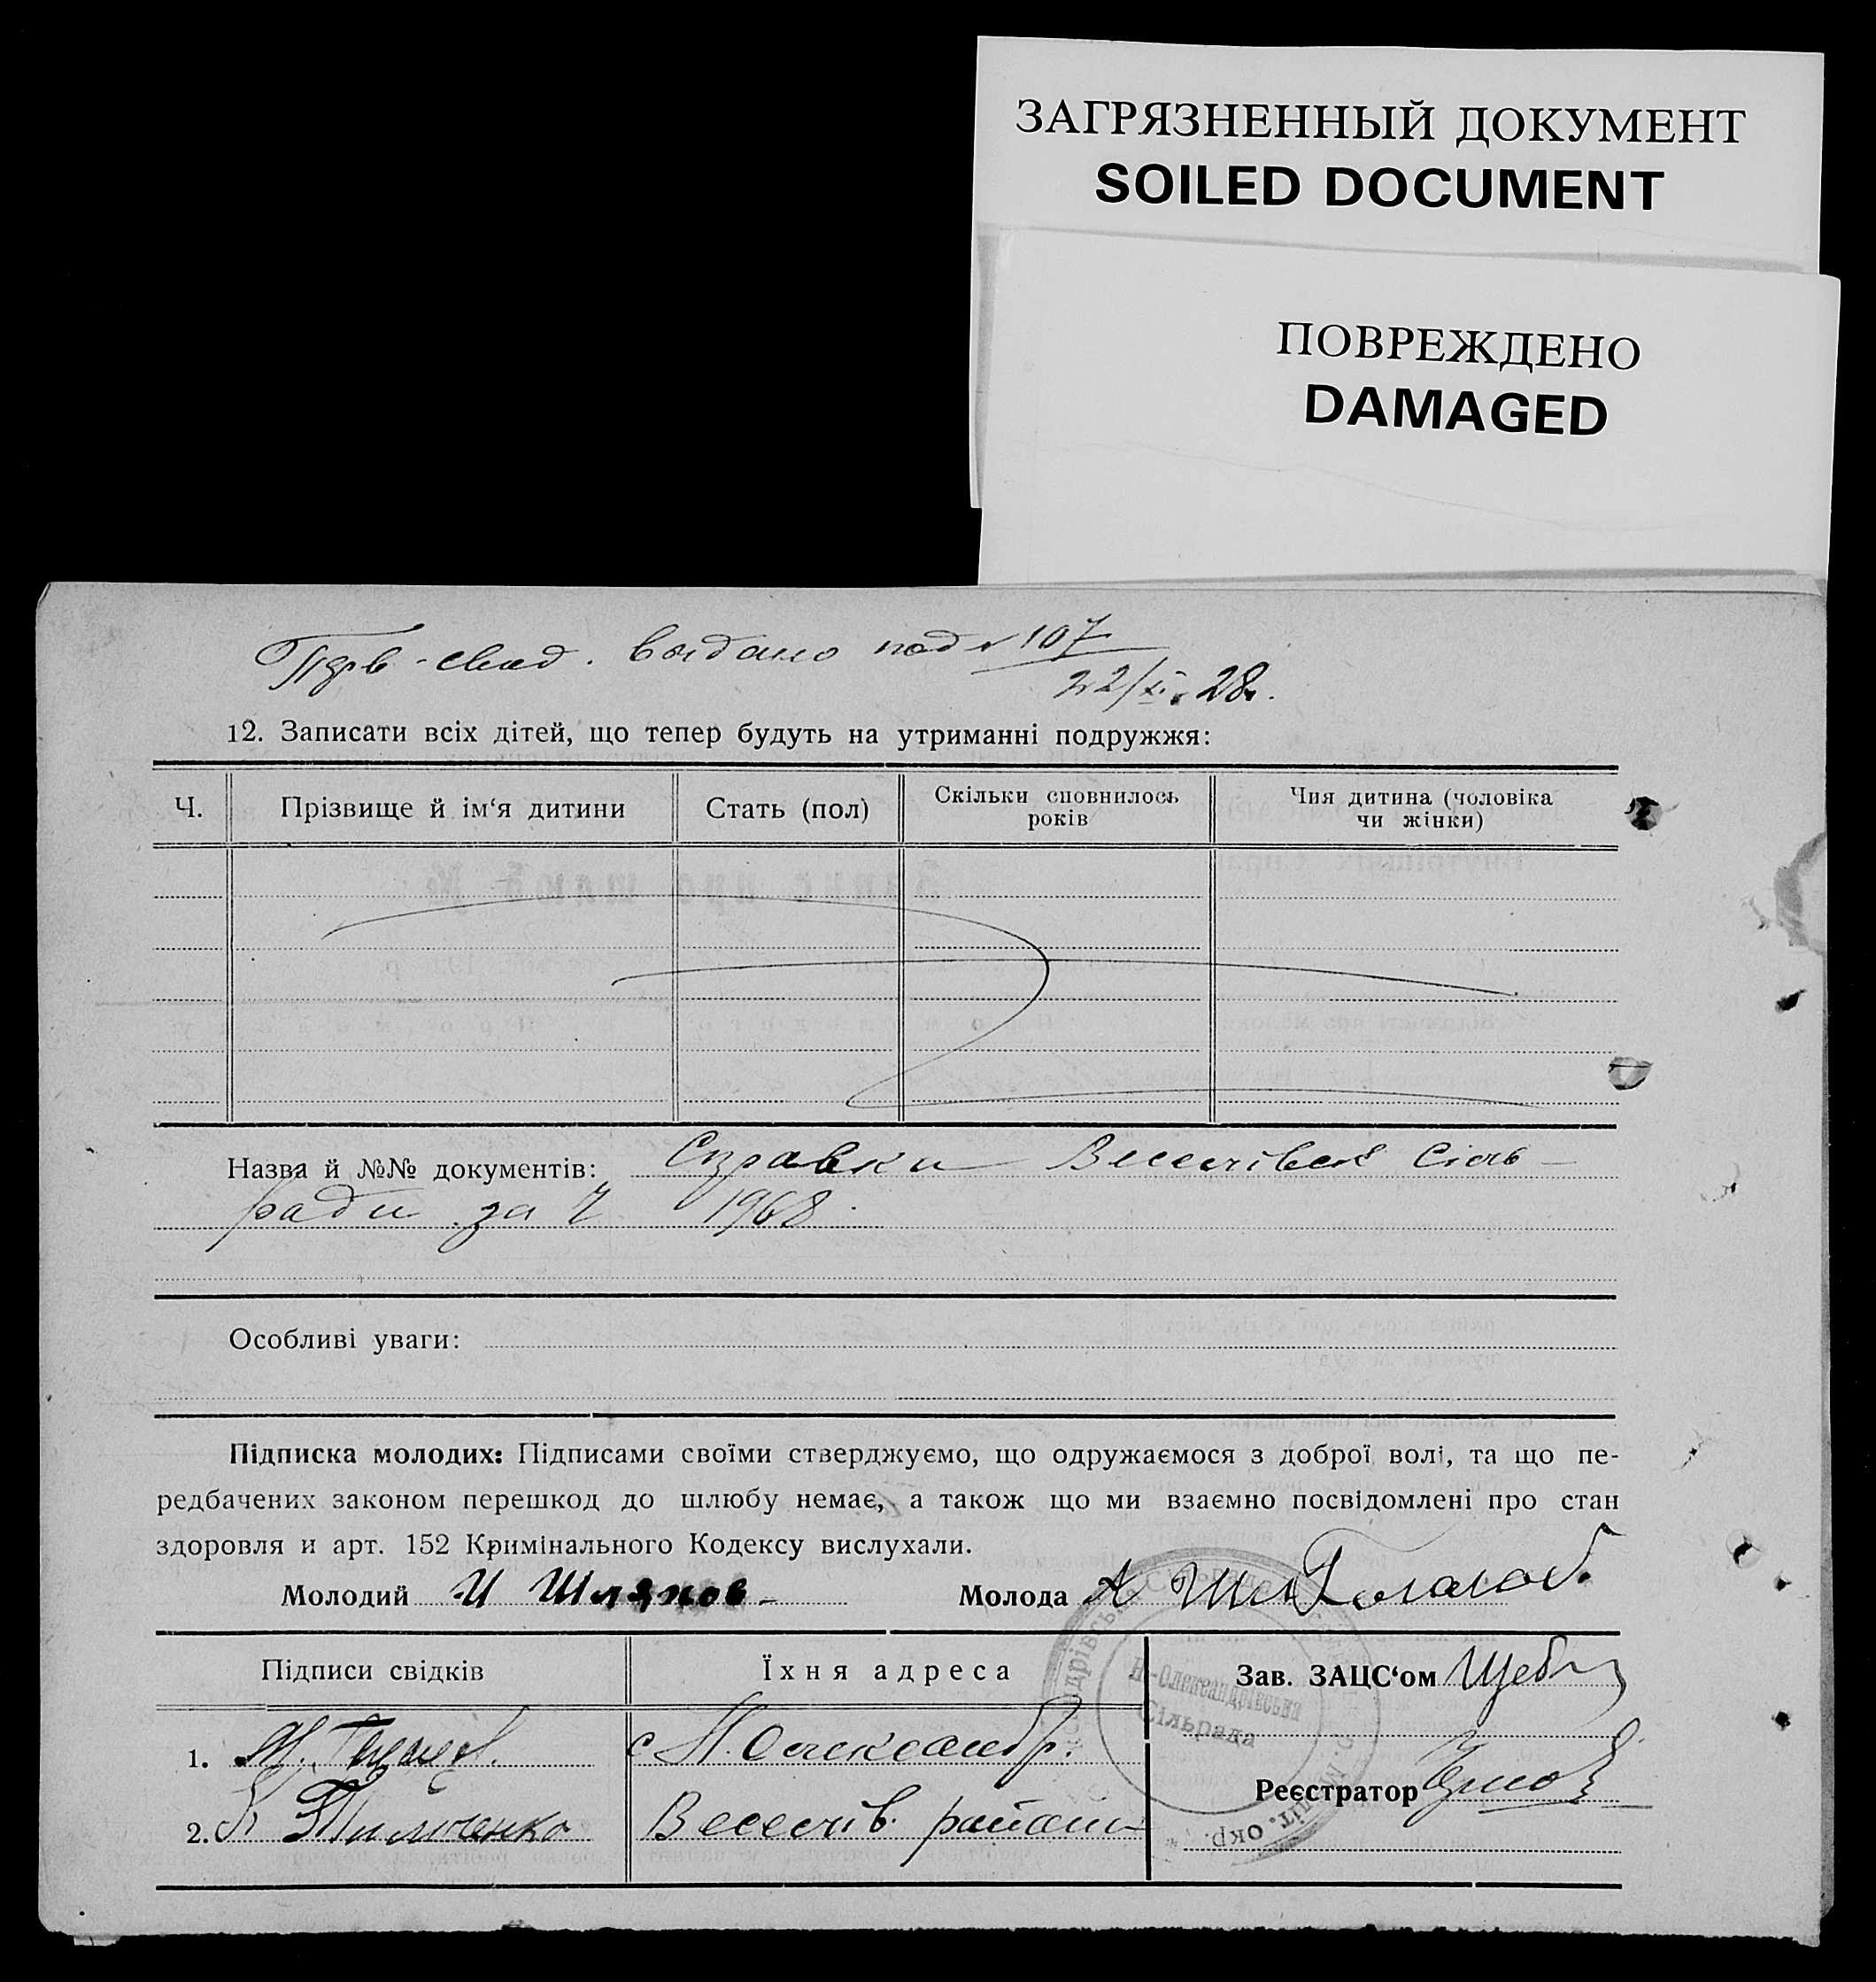 ЗАГРЯЗНЕННЫЙ ДОКУМЕНТ
SOILED DOCUMENT
ПОВРЕЖДЕНО
DAMAGED
выдано под № 107
22/XI. 28г.
12. Записати всіх дітей, що тепер будуть на утриманні подружжя:
Ч. Прізвище й ім‘я дитини Стать (пол) Скільки сповнилось років Чия дитина (чоловіка чи жінки)
Назва й №№ документів: Справки Веселівськ Сіль-
ради за Ч 1968
Особливі уваги:
Підписка молодих: Підписами своїми стверджуємо, що одружаємося з доброї волі, та що пе-
редбачених законом перешкод до шлюбу немає, а також що ми взаємно посвідомлені про стан
здоровля и арт. 152 Кримінального Кодексу вислухали.
Молодий И Шляхов Молода А
Підписи свідків Їхня адреса Зав. ЗАЦС‘ом
Н-Олександрівська
Сільрада
1. с Н. Олександр.
Реєстратор
2. Тимченко Веселів. району